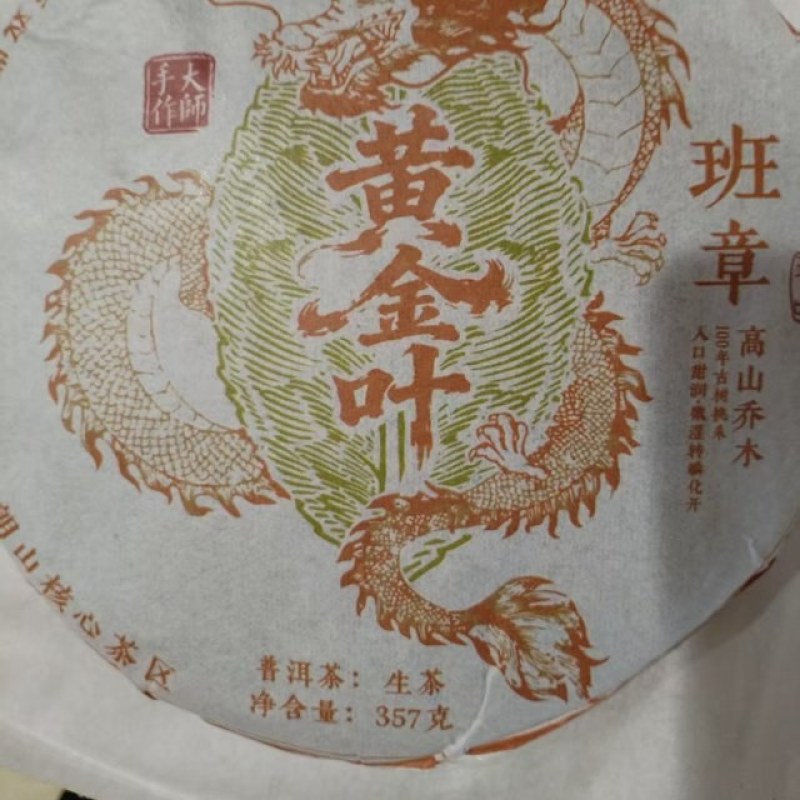 大师
手作
黄金叶
班章
高山乔木
100年古树挑采
入口甜润·微涩转瞬化开
山核心茶区
普洱茶：生茶
净含量：357克